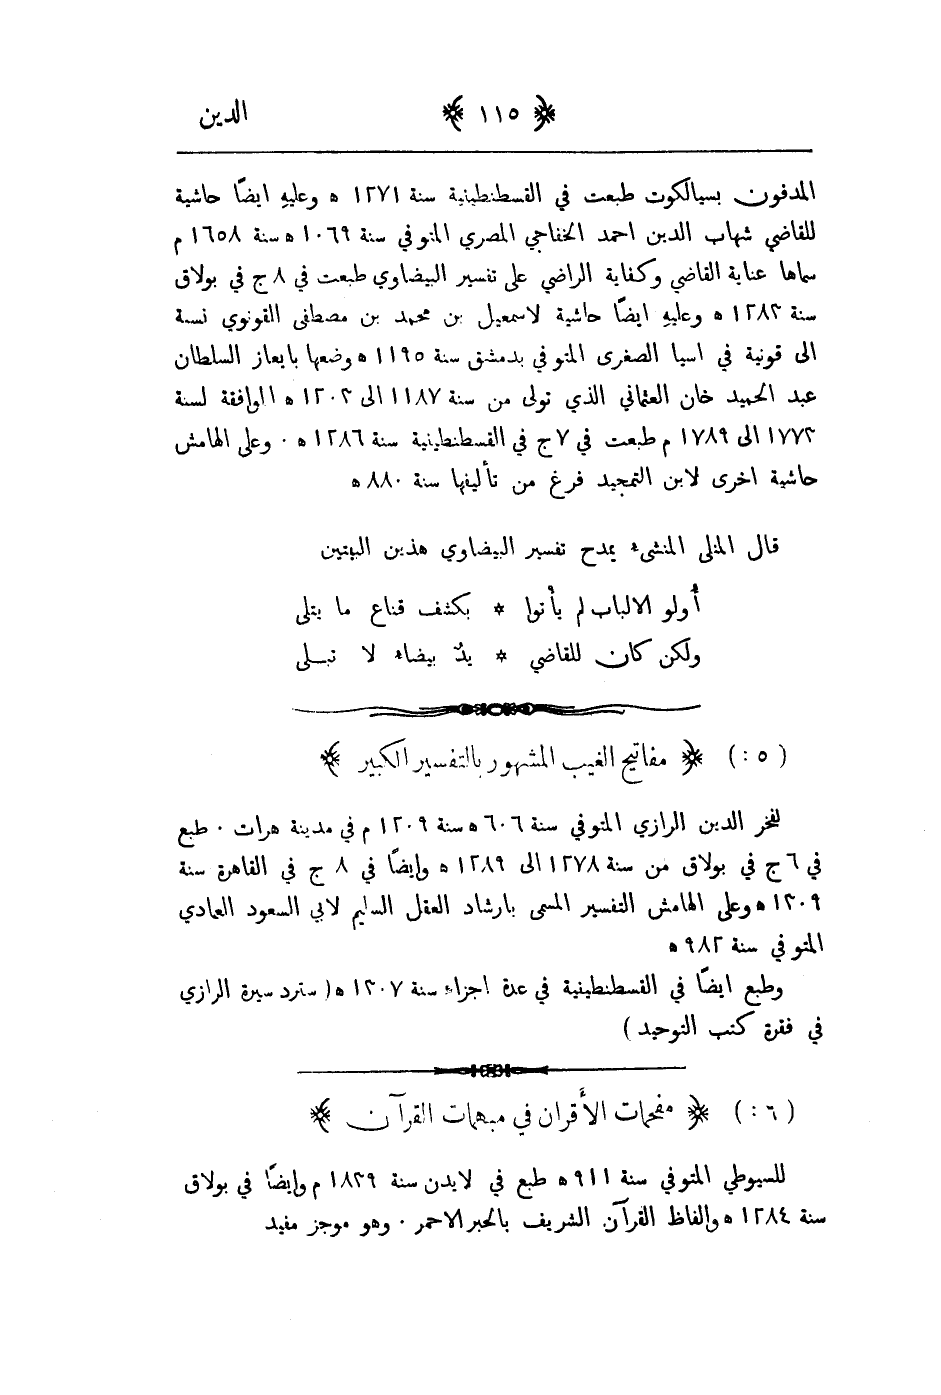 الدين ﴿ ١١٥ ﴾
المدفون بسيالكوت طبعت في القسطنطينية سنة ١٢٧١ ه وعليهِ ايضًا حاشية
للقاضي شهاب الدين احمد الخفاجي المصري المتوفي سنة ١٠٦٩ ه سنة ١٦٥٨ م
سماها عناية القاضي وكفاية الراضي على تفسير البيضاوي طبعت في ٨ ج في بولاق
سنة ١٢٨٣ ه وعليهِ ايضًا حاشية لاسمعيل بن محمد بن مصطفى القونوي نسبة
الى قونية في اسيا الصغرى المتوفي بدمشق سنة ١١٩٥ ه وضعها بايعاز السلطان
عبد الحميد خان العثماني الذي تولى من سنة ١١٨٧ الى ١٢٠٣ ه الموافقة لسنة
١٧٧٣ الى ١٧٨٩ م طبعت في ٧ ج في القسطنطينية سنة ١٢٨٦ ه ٠ وعلى الهامش
حاشية اخرى لابن التمجيد فرغ من تأليفها سنة ٨٨٠ ه
قال المنلى المنشىء يمدح تفسير البيضاوي هذين البيتين
أُولو الالباب لم يأْتوا * بكشف قناع ما يتلى
ولكن كان للقاضي * يدٌ بيضاء لا تبـلى
( ٥ : ) ﴿ مفاتيح الغيب المشهور بالتفسير الكبير ﴾
لفخر الدين الرازي المتوفي سنة ٦٠٦ ه سنة ١٢٠٩ م في مدينة هرات ٠ طبع
في ٦ ج في بولاق من سنة ١٢٧٨ الى ١٢٨٩ ه وايضًا في ٨ ج في القاهرة سنة
١٣٠٩ ه وعلى الهامش التفسير المسمى بارشاد العقل السليم لابي السعود العمادي
المتوفي سنة ٩٨٢ ه
وطبع ايضًا في القسطنطينية في عدة اجزاء سنة ١٣٠٧ ه ( سترد سيرة الرازي
في فقرة كتب التوحيد )
( ٦ : ) ﴿ مفحمات الأَقران في مبهمات القرآن ﴾
للسيوطي المتوفي سنة ٩١١ ه طبع في لايدن سنة ١٨٣٩ م وايضًا في بولاق
سنة ١٢٨٤ ه والفاظ القرآن الشريف بالحبر الاحمر ٠ وهو موجز مفيد